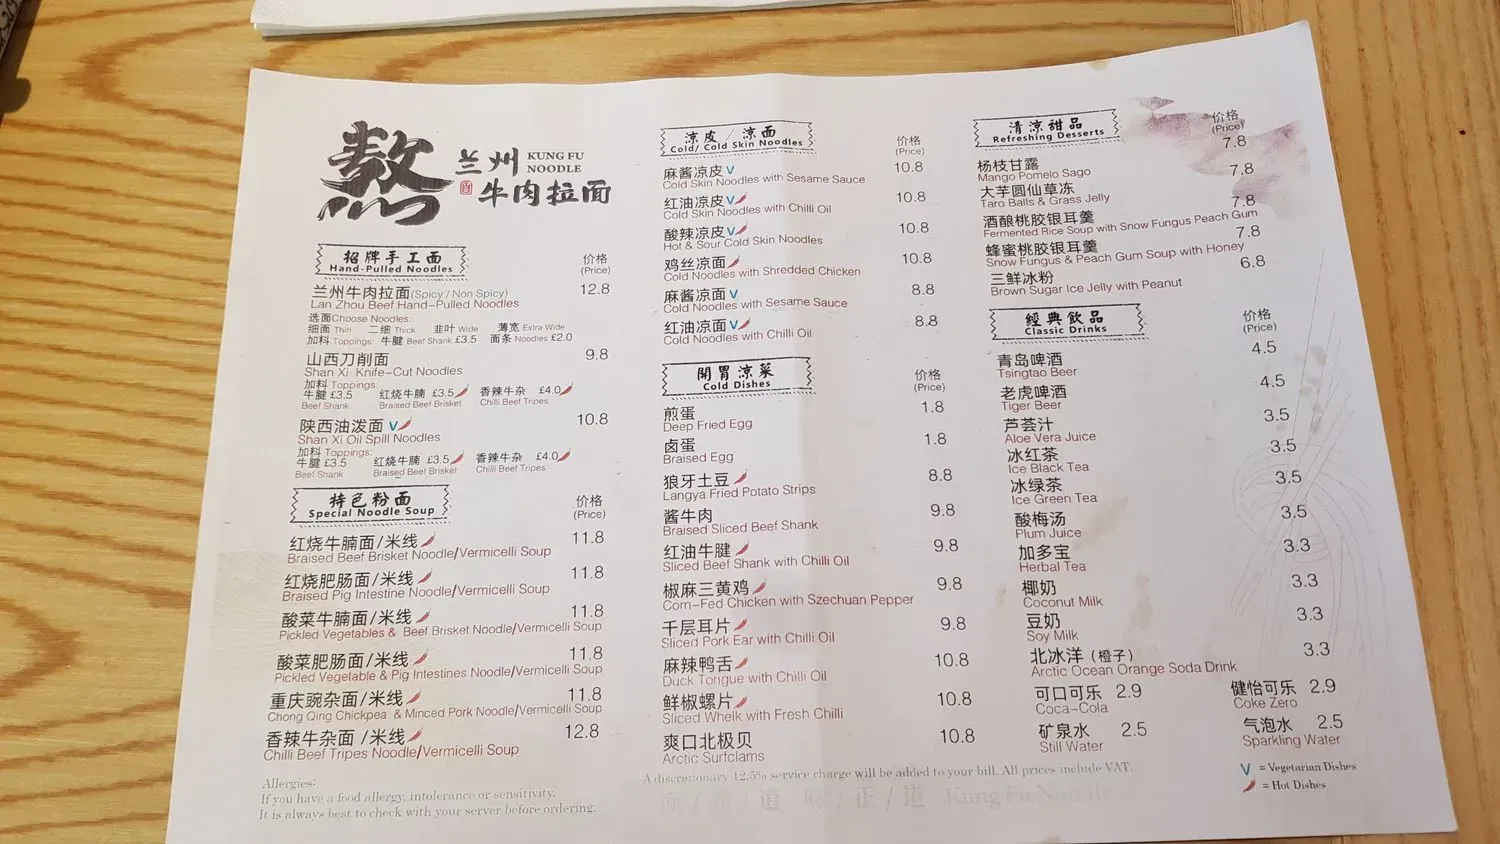 熬
兰州 KUNG FU
NOODLE
牛肉拉面
招牌手工面
Hand-Pulled Noodles
价格
(Price)
兰州牛肉拉面(Spicy / Non Spicy) 12.8
Lan Zhou Beef Hand-Pulled Noodles
选面Choose Noodles:
细面 Thin 二细 Thick 韭叶 Wide 薄宽 Extra Wide
加料 Toppings: 牛腱 Beef Shank £3.5 面条 Noodles £2.0
山西刀削面 9.8
Shan Xi Knife-Cut Noodles
加料 Toppings:
牛腱 £3.5 红烧牛腩 £3.5 香辣牛杂 £4.0
Beef Shank Braised Beef Brisket Chilli Beef Tripes
陕西油泼面 V 10.8
Shan Xi Oil Spill Noodles
加料 Toppings:
牛腱 £3.5 红烧牛腩 £3.5 香辣牛杂 £4.0
Beef Shank Braised Beef Brisket Chilli Beef Tripes
特色粉面
Special Noodle Soup
价格
(Price)
红烧牛腩面/米线 11.8
Braised Beef Brisket Noodle/Vermicelli Soup
红烧肥肠面/米线 11.8
Braised Pig Intestine Noodle/Vermicelli Soup
酸菜牛腩面/米线 11.8
Pickled Vegetables & Beef Brisket Noodle/Vermicelli Soup
酸菜肥肠面/米线 11.8
Pickled Vegetable & Pig Intestines Noodle/Vermicelli Soup
重庆豌杂面/米线 11.8
Chong Qing Chickpea & Minced Pork Noodle/Vermicelli Soup
香辣牛杂面 /米线 12.8
Chilli Beef Tripes Noodle/Vermicelli Soup
Allergies:
If you have a food allergy, intolerance or sensitivity.
It is always best to check with your server before ordering.
凉皮 / 凉面
Cold/ Cold Skin Noodles
价格
(Price)
麻酱凉皮 V 10.8
Cold Skin Noodles with Sesame Sauce
红油凉皮 V 10.8
Cold Skin Noodles with Chilli Oil
酸辣凉皮 V 10.8
Hot & Sour Cold Skin Noodles
鸡丝凉面 10.8
Cold Noodles with Shredded Chicken
麻酱凉面 V 8.8
Cold Noodles with Sesame Sauce
红油凉面 V 8.8
Cold Noodles with Chilli Oil
開胃涼菜
Cold Dishes
价格
(Price)
煎蛋 1.8
Deep Fried Egg
卤蛋 1.8
Braised Egg
狼牙土豆 8.8
Langya Fried Potato Strips
酱牛肉 9.8
Braised Sliced Beef Shank
红油牛腱 9.8
Sliced Beef Shank with Chilli Oil
椒麻三黄鸡 9.8
Corn-Fed Chicken with Szechuan Pepper
千层耳片 9.8
Sliced Pork Ear with Chilli Oil
麻辣鸭舌 10.8
Duck Tongue with Chilli Oil
鲜椒螺片 10.8
Sliced Whelk with Fresh Chilli
爽口北极贝 10.8
Arctic Surfclams
A discretionary 12.5% service charge will be added to your bill. All prices include VAT.
道 正 道 Kung Fu Noodle
清凉甜品
Refreshing Desserts
价格
(Price)
杨枝甘露 7.8
Mango Pomelo Sago
大芋圆仙草冻 7.8
Taro Balls & Grass Jelly
酒酿桃胶银耳羹 7.8
Fermented Rice Soup with Snow Fungus Peach Gum
蜂蜜桃胶银耳羹 7.8
Snow Fungus & Peach Gum Soup with Honey
三鲜冰粉 6.8
Brown Sugar Ice Jelly with Peanut
經典飲品
Classic Drinks
价格
(Price)
青岛啤酒 4.5
Tsingtao Beer
老虎啤酒 4.5
Tiger Beer
芦荟汁 3.5
Aloe Vera Juice
冰红茶 3.5
Ice Black Tea
冰绿茶 3.5
Ice Green Tea
酸梅汤 3.5
Plum Juice
加多宝 3.3
Herbal Tea
椰奶 3.3
Coconut Milk
豆奶 3.3
Soy Milk
北冰洋 (橙子) 3.3
Arctic Ocean Orange Soda Drink
可口可乐 2.9 健怡可乐 2.9
Coca-Cola Coke Zero
矿泉水 2.5 气泡水 2.5
Still Water Sparkling Water
V = Vegetarian Dishes
= Hot Dishes